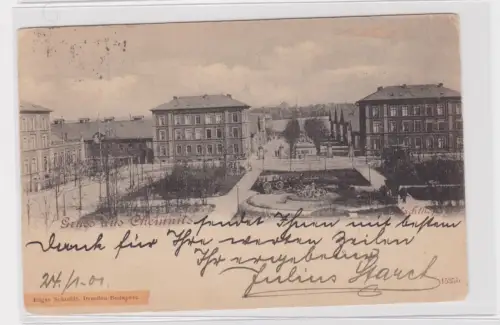 Gruss aus Chemnitz
sendet Ihnen mit bestem
Dank für Ihre werten Zeilen
Ihr ergebener
Julius Starck
24/1.01
Edgar Schmidt, Dresden-Budapest.